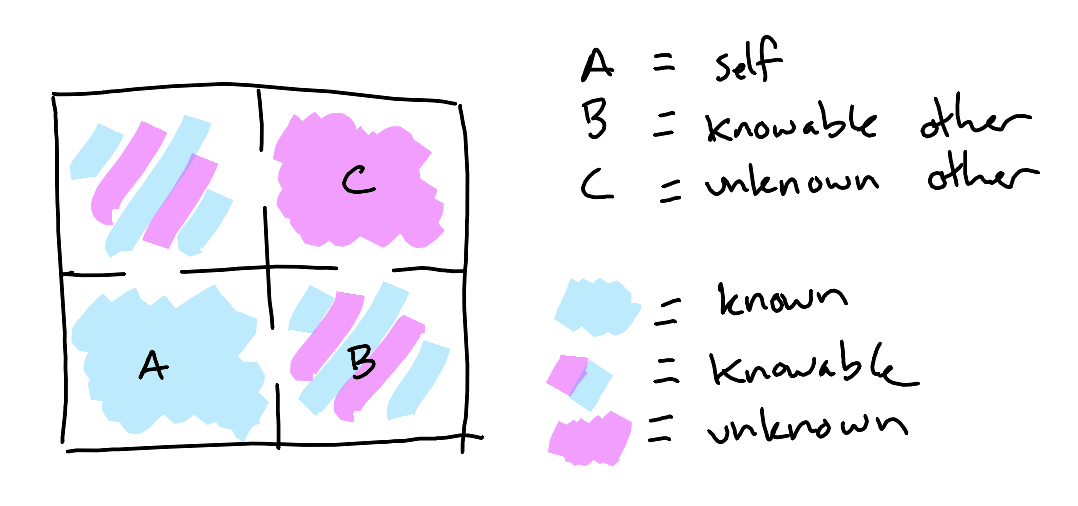 C
A
B
A = self
B = knowable other
C = unknown other
= known
= knowable
= unknown